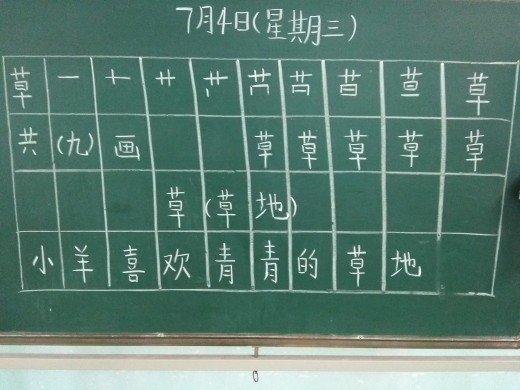 7月4日(星期三)
草 一 十 艹 艹 芦 苩 苩 荁 草
共 (九) 画 草 草 草 草 草
草 (草 地)
小 羊 喜 欢 青 青 的 草 地